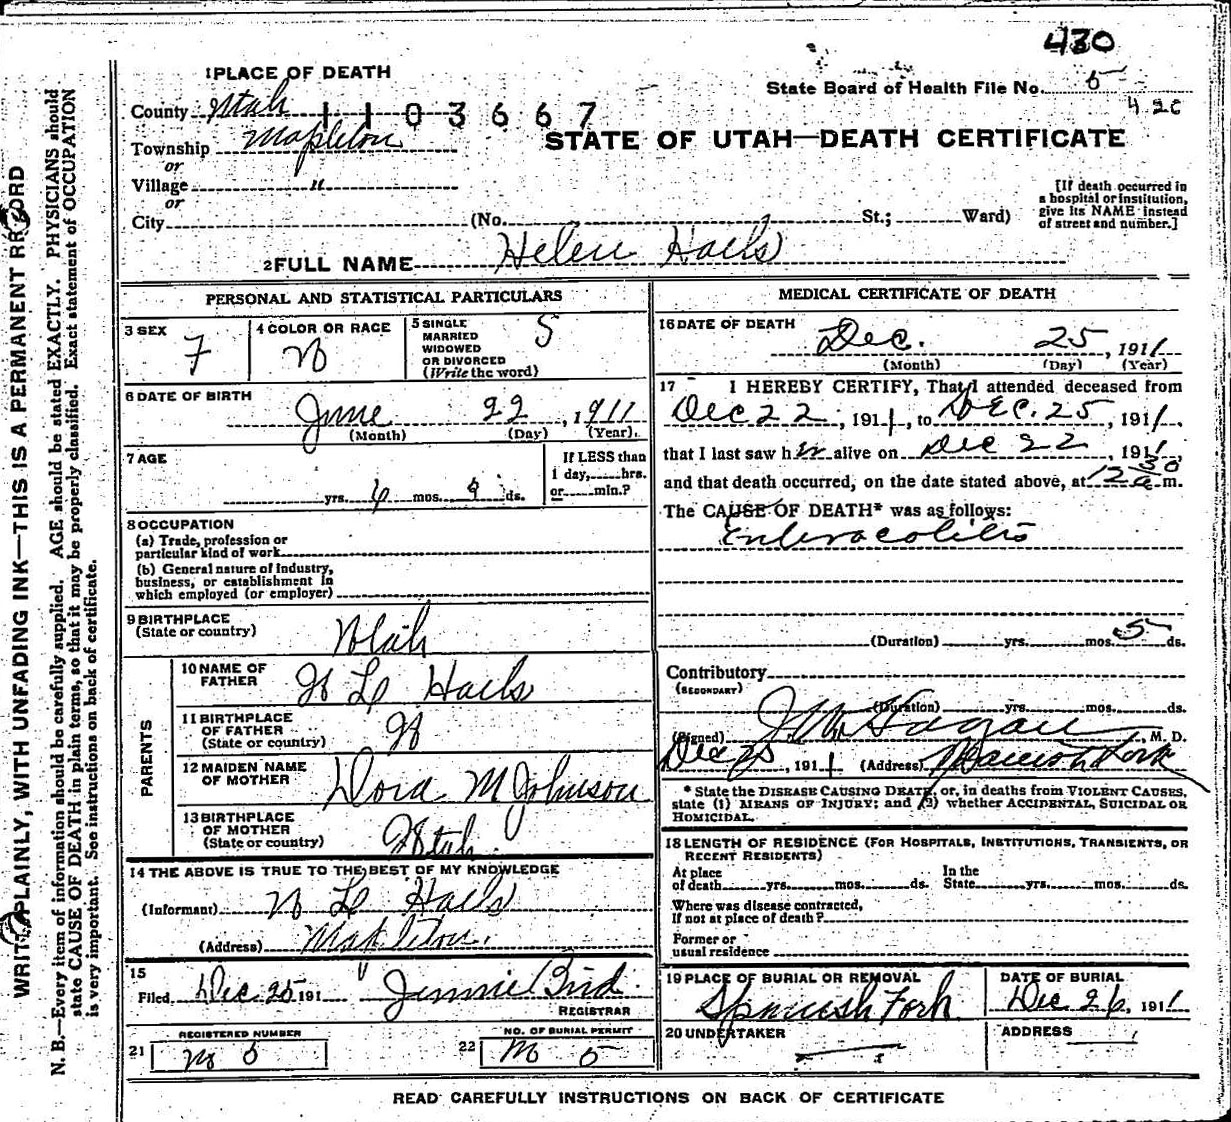 430
1 PLACE OF DEATH
State Board of Health File No. 5
420
County Utah
1103667
Township Mapleton
STATE OF UTAH—DEATH CERTIFICATE
or
Village "
or
City (No. St.; Ward)
[If death occurred in
a hospital or institution,
give its NAME instead
of street and number.]
2 FULL NAME Helen Hails
PERSONAL AND STATISTICAL PARTICULARS
3 SEX
F
4 COLOR OR RACE
W
5 SINGLE
MARRIED
WIDOWED
OR DIVORCED
(Write the word)
S
6 DATE OF BIRTH
June 22, 1911
(Month) (Day) (Year).
7 AGE
yrs. 6 mos. ds.
If LESS than
1 day, hrs.
or min.?
8 OCCUPATION
(a) Trade, profession or
particular kind of work
(b) General nature of industry,
business, or establishment in
which employed (or employer)
9 BIRTHPLACE
(State or country)
Utah
PARENTS
10 NAME OF
FATHER
Hails
11 BIRTHPLACE
OF FATHER
(State or country)
12 MAIDEN NAME
OF MOTHER
Dora M Johnson
13 BIRTHPLACE
OF MOTHER
(State or country)
Utah
14 THE ABOVE IS TRUE TO THE BEST OF MY KNOWLEDGE
(Informant) Hails
(Address) Mapleton.
15
Filed Dec. 25 191 Jennie Bird
REGISTRAR
REGISTERED NUMBER
21 No 5
NO. OF BURIAL PERMIT
22 No 5
MEDICAL CERTIFICATE OF DEATH
16 DATE OF DEATH
Dec. 25, 1911
(Month) (Day) (Year)
17 I HEREBY CERTIFY, That I attended deceased from
Dec 22, 1911, to Dec. 25, 1911.
that I last saw her alive on Dec 22, 1911,
and that death occurred, on the date stated above, at 12 30 a m.
The CAUSE OF DEATH* was as follows:
Enterocolitis
(Duration) yrs. mos. 5 ds.
Contributory
(SECONDARY)
(Duration) yrs. mos. ds.
(Signed) J. M. Hagan, M. D.
Dec 25, 1911 (Address) Spanish Fork
* State the DISEASE CAUSING DEATH, or, in deaths from VIOLENT CAUSES,
state (1) MEANS OF INJURY; and (2) whether ACCIDENTAL, SUICIDAL OR
HOMICIDAL.
18 LENGTH OF RESIDENCE (FOR HOSPITALS, INSTITUTIONS, TRANSIENTS, OR
RECENT RESIDENTS)
At place
of death yrs. mos. ds.
In the
State yrs. mos. ds.
Where was disease contracted,
If not at place of death?
Former or
usual residence
19 PLACE OF BURIAL OR REMOVAL
Spanish Fork
DATE OF BURIAL
Dec 26, 1911
20 UNDERTAKER
ADDRESS
READ CAREFULLY INSTRUCTIONS ON BACK OF CERTIFICATE
WRITE PLAINLY, WITH UNFADING INK—THIS IS A PERMANENT RECORD
N. B.—Every item of information should be carefully supplied. AGE should be stated EXACTLY. PHYSICIANS should
state CAUSE OF DEATH in plain terms, so that it may be properly classified. Exact statement of OCCUPATION
is very important. See instructions on back of certificate.